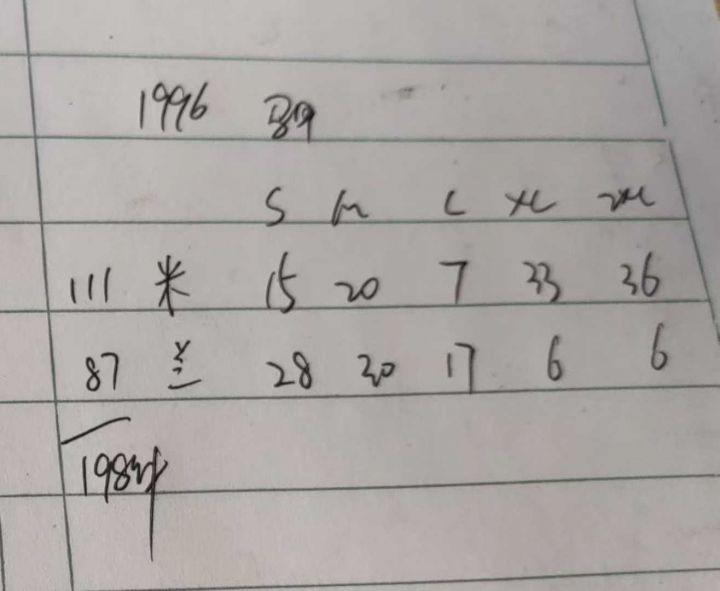 1996
S M L XL 2XL
111 米 15 20 7 33 36
87 兰 28 30 17 6 6
198件